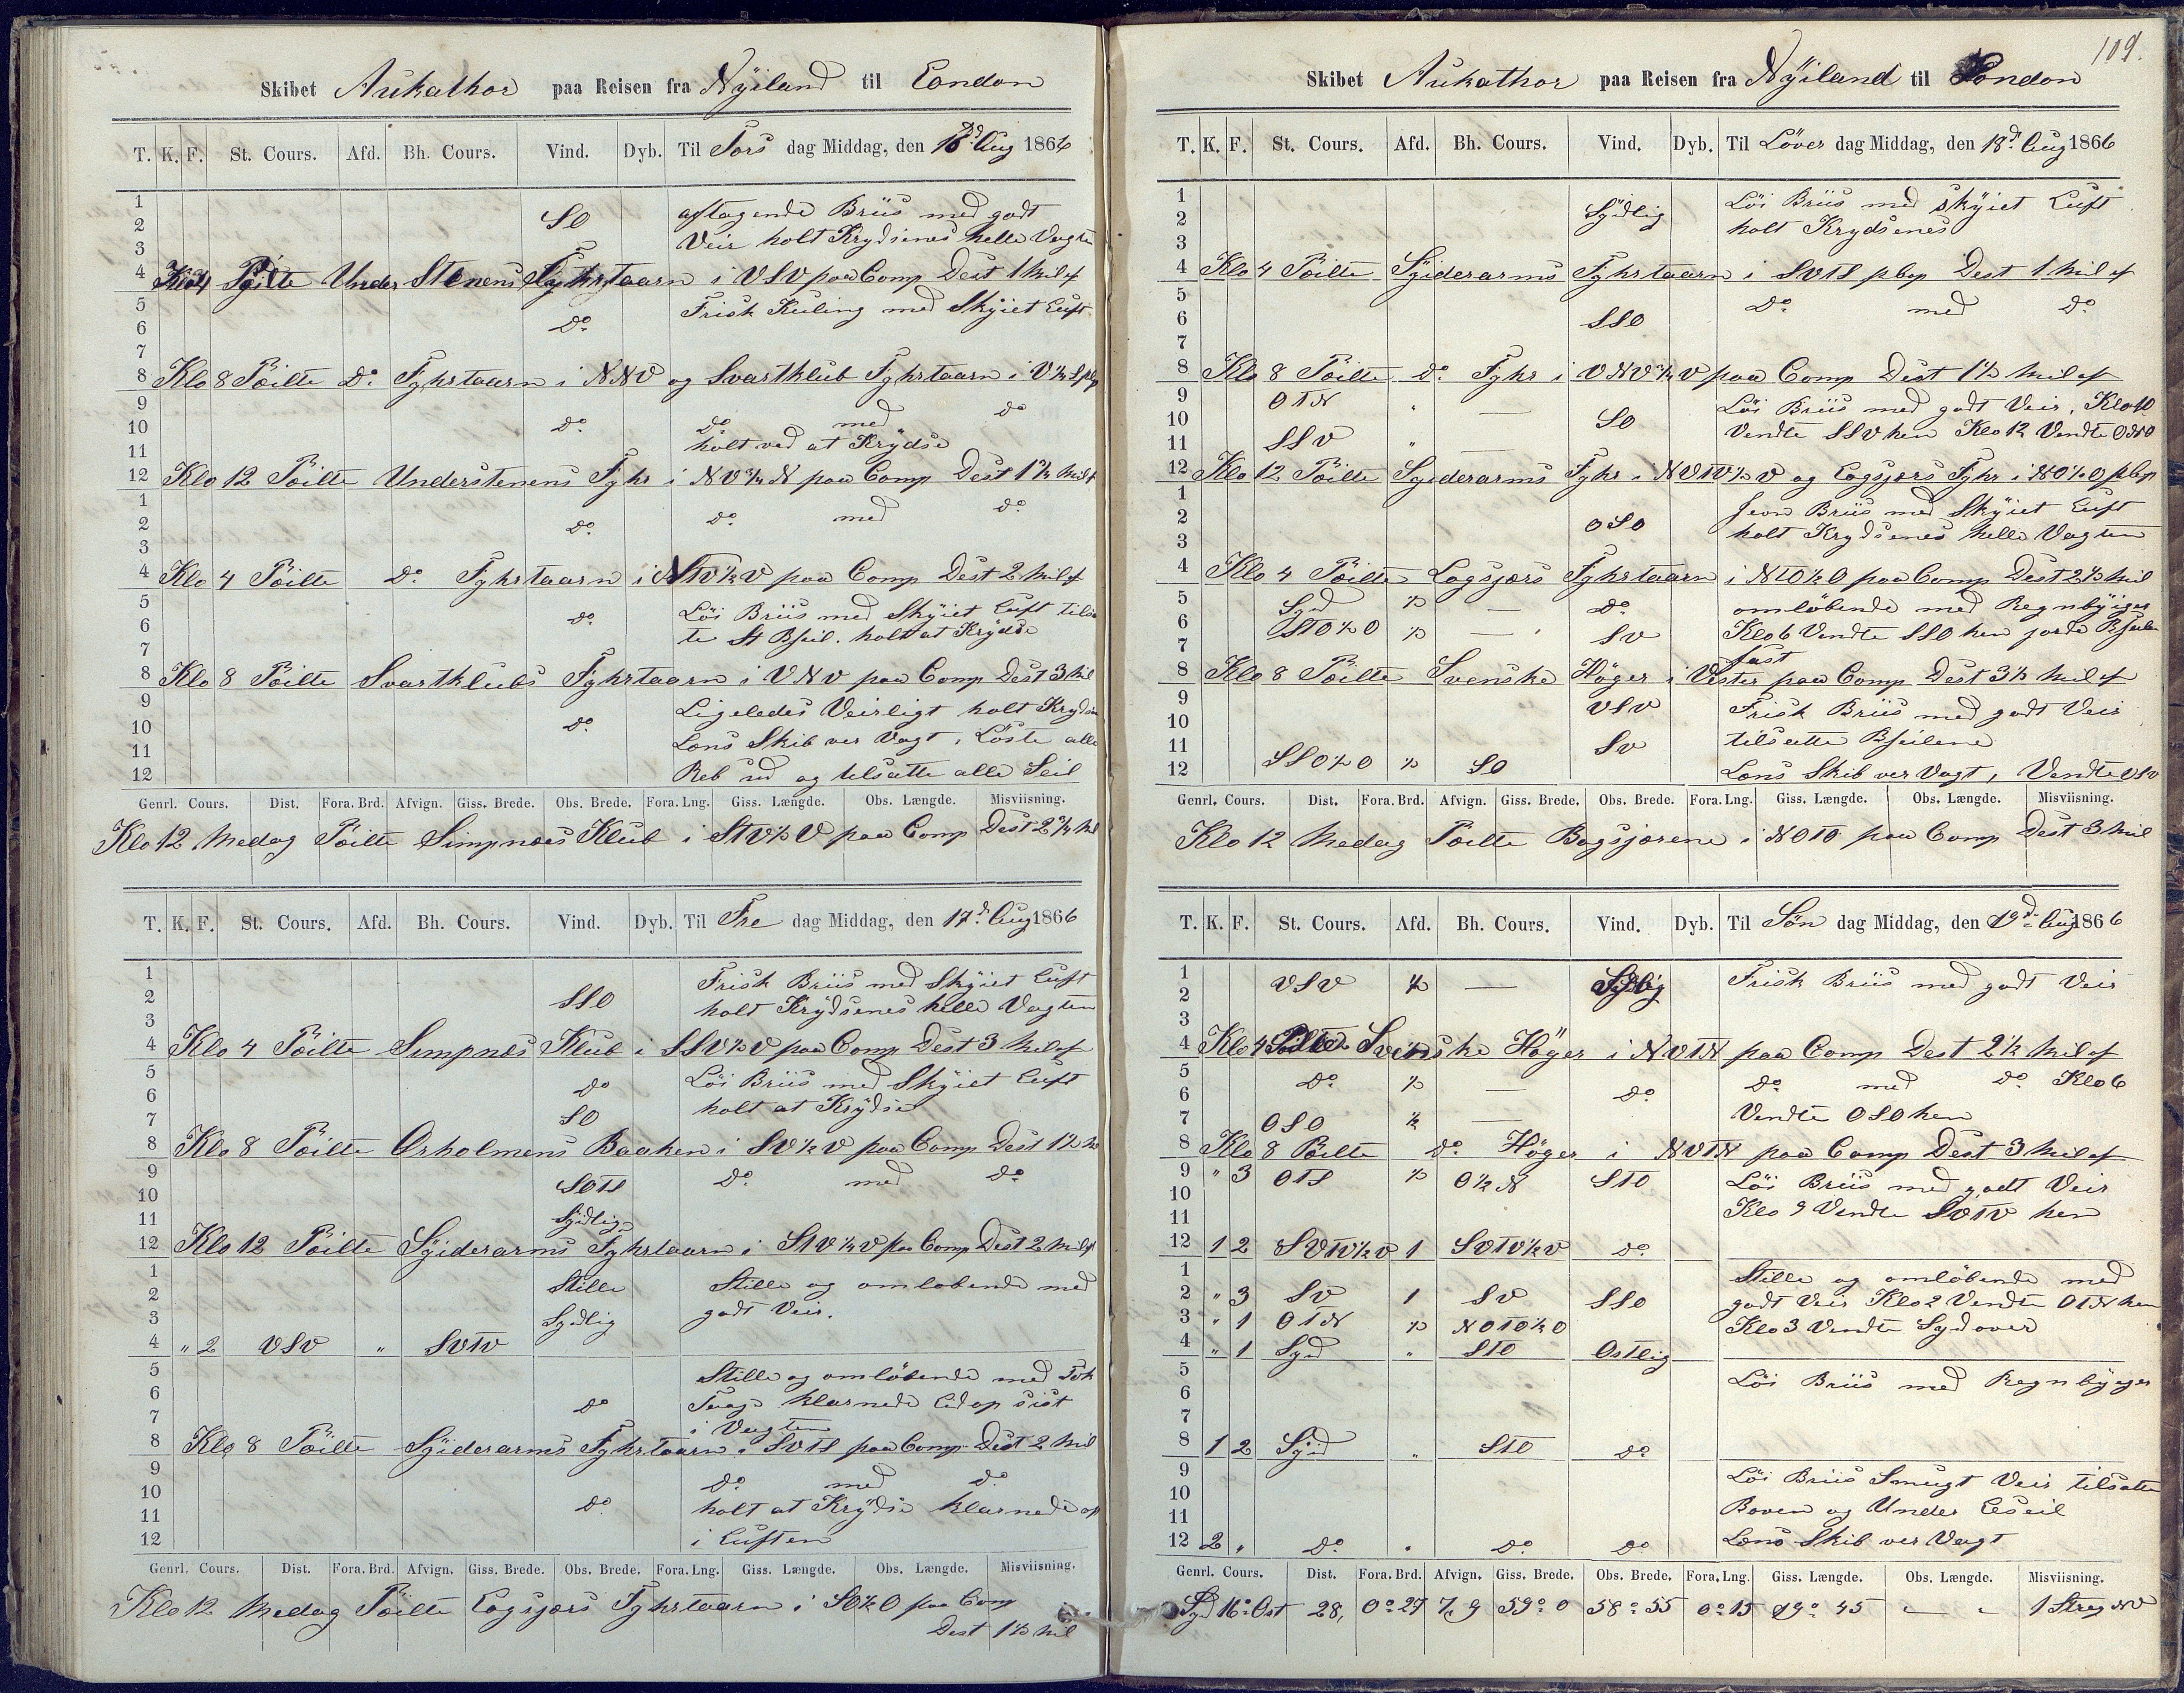 Skibet Aukathor paa Reisen fra Nyïland til London
T. K. F. St. Cours. Afd. Bh. Cours. Vind. Dyb. Til Tors dag Middag, den 16d Aug 1866
1
2 SO aftagende Briis med godt
3 Veir holt Krydsenes helle Vagten
4 Klo 4 Pöilte Understenens Fyhrtaarn i VSV paa Comp Dest 1 Mil af
5 Frisk Kuling med Skÿiet Luft
6 Do
7
8 Klo 8 Pöilte Do Fyhrtaarn i NNV og Svartklub Fyhrtaarn i V½S pkp
9
10 Do Do med Do
11 holt ved at Krÿdse
12 Klo 12 Pöilte Understenens Fyhr i NV¾N paa Comp Dest 1¾ Mil af
1
2 Do Do med Do
3
4 Klo 4 Pöilte Do Fyhrtaarn i NTV½V paa Comp Dest 2 Mil af
5 Do Löi Briis med Skÿiet Luft tilsa
6 te St Bseil. holt at Krÿdse
7
8 Klo 8 Pöilte Svartklubs Fyhrtaarn i VNV paa Comp Dest 3 Mil
9 Ligeledes Veirligt holt Krydsen
10 Do
11 Lens Skib ver Vagt, Löste alle
12 Reb ud og tilsatte alle Seil
Genrl. Cours. Dist. Fora. Brd. Afvign. Giss. Brede. Obs. Brede. Fora. Lng. Giss. Længde. Obs. Længde. Misviisning.
Klo 12 Medag Pöilte Simpnæs Klub i STV½V paa Comp Dest 2¾ Mil
T. K. F. St. Cours. Afd. Bh. Cours. Vind. Dyb. Til Fre dag Middag, den 17d Aug 1866
1 Frisk Briis med Skÿiet Luft
2 SSO holt Krÿdsenes helle Vagten
3
4 Klo 4 Pöilte Simpnæs Klub i SSV½V paa Comp Dest 3 Mil af
5 Do Löi Briis med Skÿiet Luft
6 holt at Krÿdse
7 SO
8 Klo 8 Pöilte Orholmens Baaken i SV½V paa Comp Dest 1½
9 SOTS Do med Do
10
11 Sydlig
12 Klo 12 Pöilte Sÿiderarms Fyhrtaarn i STV½V paa Comp Dest 2 Mil af
1 Stille Stille og omlobende med
2 godt Veir.
3 Sydlig
4 " 2 VSV " SVTV
5 Stille og omlöbende med Tok
6 Do klarnede Lidop sist
7 i Vagten
8 Klo 8 Pöilte Sÿiderarms Fyhrtaarn i SVTS paa Comp Dest 2 Mil
9 Do med Do
10 Do holt at Krÿdse klarnede op
11
12 i Luften
Genrl. Cours. Dist. Fora. Brd. Afvign. Giss. Brede. Obs. Brede. Fora. Lng. Giss. Længde. Obs. Længde. Misviisning.
Klo 12 Medag Pöilte Lagsjærs Fyhrtaarn i SO½O paa Comp
Dest 1½ Mil
109.
Skibet Aukathor paa Reisen fra Nÿiland til London
T. K. F. St. Cours. Afd. Bh. Cours. Vind. Dyb. Til Löver dag Middag, den 18d Aug 1866
1 Löi Briis med skÿiet Luft
2 Sÿdlig holt Krydsenes
3
4 Klo 4 Pöilte Sÿiderarms Fyhrtaarn i SVTS pkp Dest 1 Mil af
5 Do med Do
6 SSO
7
8 Klo 8 Pöilte Do Fyhr i VNV¾V paa Comp Dest 1½ Mil af
9 OTN " — Löi Briis med godt Veir, Klo 10
10 SO
11 SSV " Vendte SSV hen Klo 12 Vendte
12 Klo 12 Pöilte Sÿiderarms Fyhr i NVTV½V og Lagsjærs Fyhr i NO½O pkp
1 Jevn Briis med Skÿiet Luft
2 OSO
3 holt Krydsenes helle Vagten
4 Klo 4 Pöilte Lagsjærs Fyhrtaarn i NTO½O paa Comp Dest 2½ Mil
5 Syd ½ — Do omlöbende med Regnbÿiger
6 STO½O ½ — SV Klo 6 Vendte SSO hen jorde Bseilene
7 fast
8 Klo 8 Pöilte Svenske Höger i Vester paa Comp Dest 3½ Mil af
9 VSV Frisk Briis med godt Veir
10
11 SV tilsatte Bseilene
12 SSO½O ½ SO Lens Skib ver Vagt, Vendte VSV
Genrl. Cours. Dist. Fora. Brd. Afvign. Giss. Brede. Obs. Brede. Fora. Lng. Giss. Længde. Obs. Længde. Misviisning.
Klo 12 Medag Pöilte Bogsjærene i NOTO paa Comp Dest 3 Mil
T. K. F. St. Cours. Afd. Bh. Cours. Vind. Dyb. Til Sön dag Middag, den 19d Aug 1866
1 VSV ½ — Sydlig Frisk Briis med godt Veir
2
3
4 Klo 4 Pöilte Svenske Höger i NVTN paa Comp Dest 2½ Mil af
5 Do ½ — Do med Do Klo 6
6 Do
7 OSO ½ — Vendte OSO hen
8 Klo 8 Pöilte Do Höger i NVTN paa Comp Dest 3 Mil af
9 " 3 OTS ½ O½N STO Löi Briis med godt Veir
10
11 Klo 9 Vendte SVTV hen
12 1 2 SVTV½V 1 SVTV½V Do
1 Stille og omlöbende med
2 " 3 SV 1 SV SSO godt Veir Klo 2 Vendte OTN hen
3 " 1 OTN ½ NOTO½O Klo 3 Vendte Sydover
4 " 1 Syd " STO Ostlig
5 Löi Briis med Regnbyger
6
7
8 1 2 Sÿd " STO Do
9 Löi Briis Smugt Veir tilsatte
10
11 Boven og Under Leseil
12 2 " Do " Do Do Lens Skib ver Vagt
Genrl. Cours. Dist. Fora. Brd. Afvign. Giss. Brede. Obs. Brede. Fora. Lng. Giss. Længde. Obs. Længde. Misviisning.
Syd 16° Ost 28, 0° 27 7,9 59° 0 58° 55 0° 15 19° 45 — " 1 Streg NV